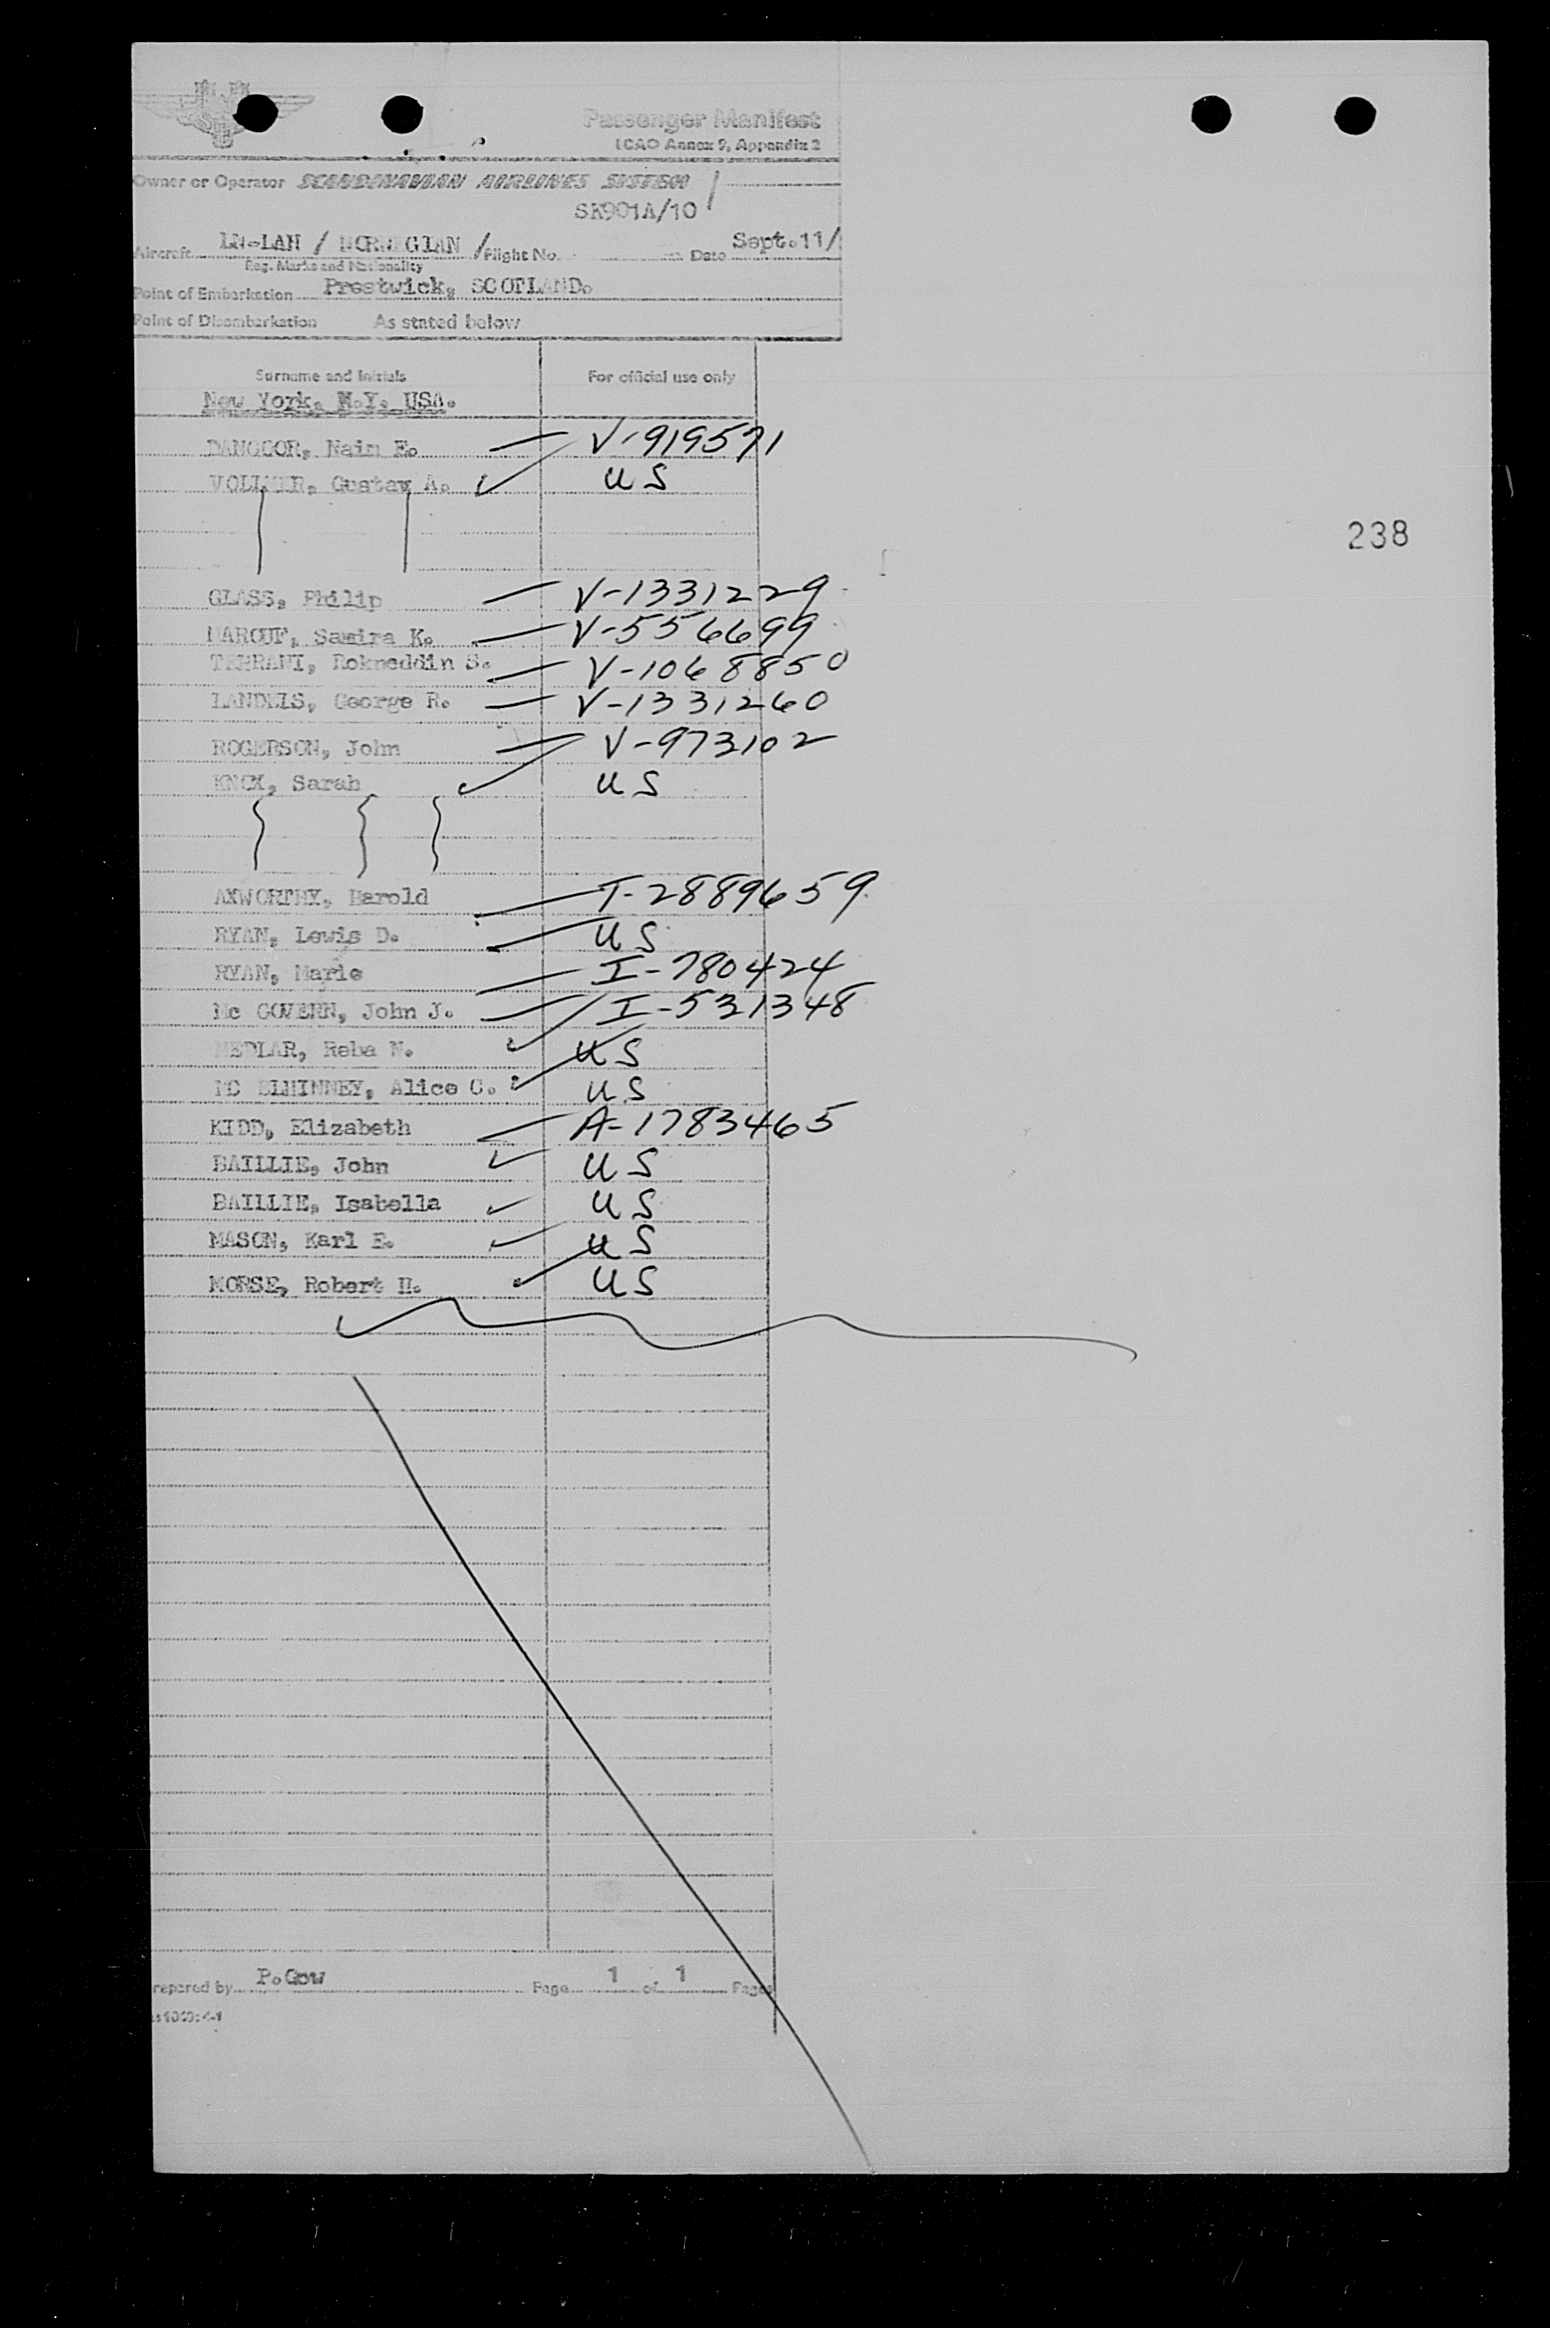 Passenger Manifest
ICAO Annex 9, Appendix 2
Owner or Operator SCANDINAVIAN AIRLINES SYSTEM
SK901A/10
Aircraft LN-LAH / NORWEGIAN / Flight No. Date Sept.11/
Reg. Marks and Nationality
Point of Embarkation Prestwick, SCOTLAND.
Point of Disembarkation As stated below
Surname and Initials For official use only
New York, N.Y. USA.
DANGOOR, Naim E. V-919571
VOLLMER, Gustav A. US
238
GLASS, Philip V-1331229
MAROUF, Samira K. V-556699
TEHRANI, Rokneddin S. V-1068850
LANDELS, George R. V-1331260
ROGERSON, John V-973102
KNOX, Sarah US
AXWORTHY, Harold T-2889659
RYAN, Lewis D. US
RYAN, Marie I-780424
Mc GOVERN, John J. I-531348
MEDLAR, Reba N. US
MC ELHINNEY, Alice C. US
KIDD, Elizabeth A-1783465
BAILLIE, John US
BAILLIE, Isabella US
MASON, Karl E. US
MORSE, Robert H. US
repared by P.Gow Page 1 of 1 Pages